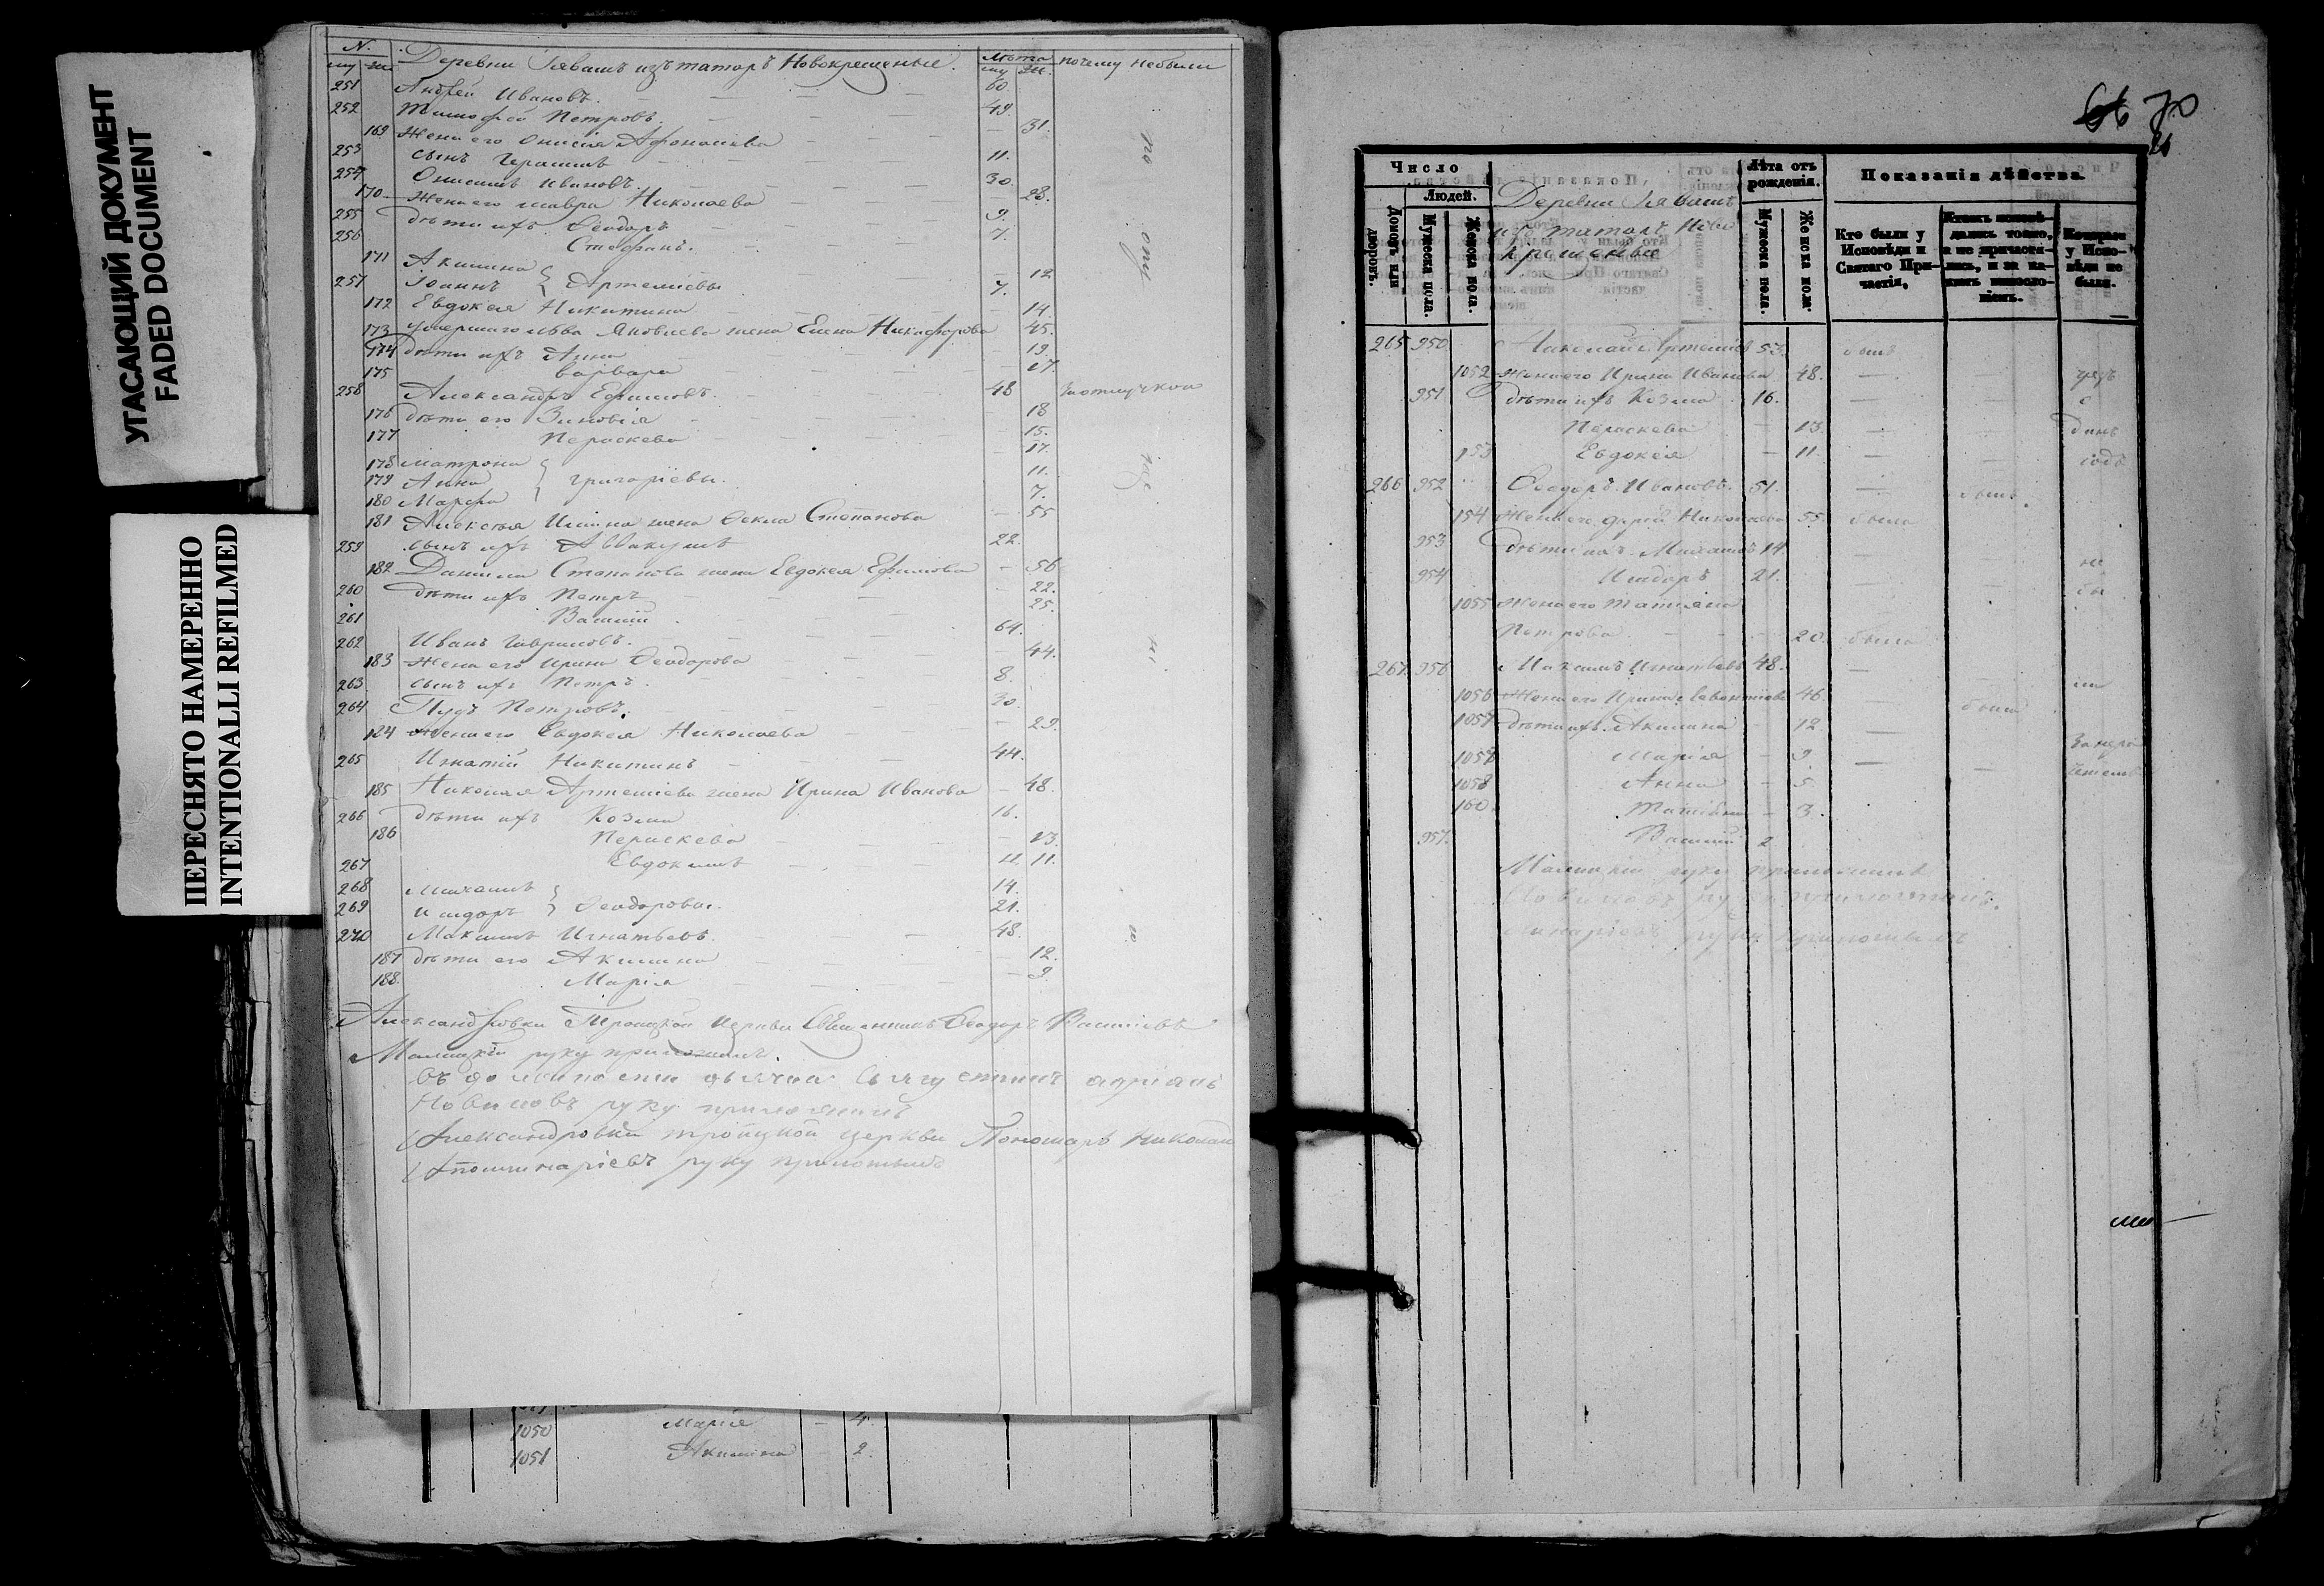 УГАСАЮЩИЙ ДОКУМЕНТ
FADED DOCUMENT
ПЕРЕСНЯТО НАМЕРЕННО
INTENTIONALLI REFILMED
N. Деревни изъ татаръ Новокрещеные. Лѣта почему небыли
му же му же
251 Андрей Ивановъ. 60
252 Тимофей Петровъ. 49.
169 Жена его Онисія Афонасіева 31.
253 сынъ Герасимъ 11.
254 Онисимъ Ивановъ. 30.
170 Жена его Мавра Николаева 28.
255 дѣти ихъ Ѳеодоръ 9.
256 Стефанъ. 7.
171 Акилина 12
257 Іоаннъ Артеміевы 7.
172 Евдокея Никитина 14.
173 Умершаго Льва Яковлева жена Елена Никифорова 45.
174 дѣти ихъ Анна 19.
175 Варвара 17.
258 Александръ Ефимовъ. 48 Заотлучкой
176 дѣти его Зиновія 18
177 Пераскева 15.
178 Матрона 17.
179 Анна Григоріевы. 11.
180 Марфа 7.
181 Алексѣя Ильина жена Ѳекла Степанова 55
259 сынъ ихъ Аввакумъ 22.
182 Данила Степанова жена Евдокея Ефимова 56
260 дѣти ихъ Петръ 22.
261 Василій 25.
262 Иванъ Гавриловъ. 64.
183 Жена его Ирина Ѳеодорова 44.
263 сынъ ихъ Петръ. 8.
264 Пудъ Петровъ. 30.
184 Жена его Евдокея Николаева 29.
265 Игнатій Никитинъ 44.
185 Николая Артеміева жена Ирина Иванова 48.
266 дѣти ихъ Козма 16.
186 Пераскева 13.
267 Евдокимъ 11.
268 Михаилъ 14.
269 Исидоръ Ѳеодоровы. 21.
270 Максимъ Игнатьевъ. 48.
187 дѣти его Акилина 12.
188 Марія 9
Александровки Троицкой Церкви Священникъ Ѳеодоръ Василіевъ
Малицкій руку приложилъ.
въ должности дьячка
Новиковъ руку приложилъ
Александровки троицкой церкви Пономарь Николай
Аполинаріевъ руку приложилъ
1050 Марія 4.
1051 Акилина 2.
66 70
Число
Людей.
Домовъ или дворовъ.
Мужеска пола.
Женска пола.
Деревни
изъ татаръ Ново
крещеные
Лѣта отъ рожденія.
Мужеска пола.
Женска пола.
Показанія дѣйства.
Кто были у Исповѣди и Святаго Причастія,
265 950 Николай Артеміевъ 53. былъ
1052 Жена его Ирина Иванова 48.
951 дѣти ихъ Козма 16.
Пераскева 13
153 Евдокея 11.
266 952 Ѳеодоръ Ивановъ. 51. былъ
154 Жена его Дарія Николаева 55. была
953 дѣти ихъ Михаилъ 14
954 Исидоръ 21. не
1055 Жена его Татіяна бы
Петрова 20. была
267 956 Максимъ Игнатьевъ 48.
1056 Жена его Ирина Леонтіева 46. была
1057 дѣти ихъ Акилина 12
1057 Марія 9.
1058 Анна 5.
160 Татіяна 3.
957. Василій 2
Малицкій руку приложилъ
Новиковъ руку приложилъ.
руку приложилъ